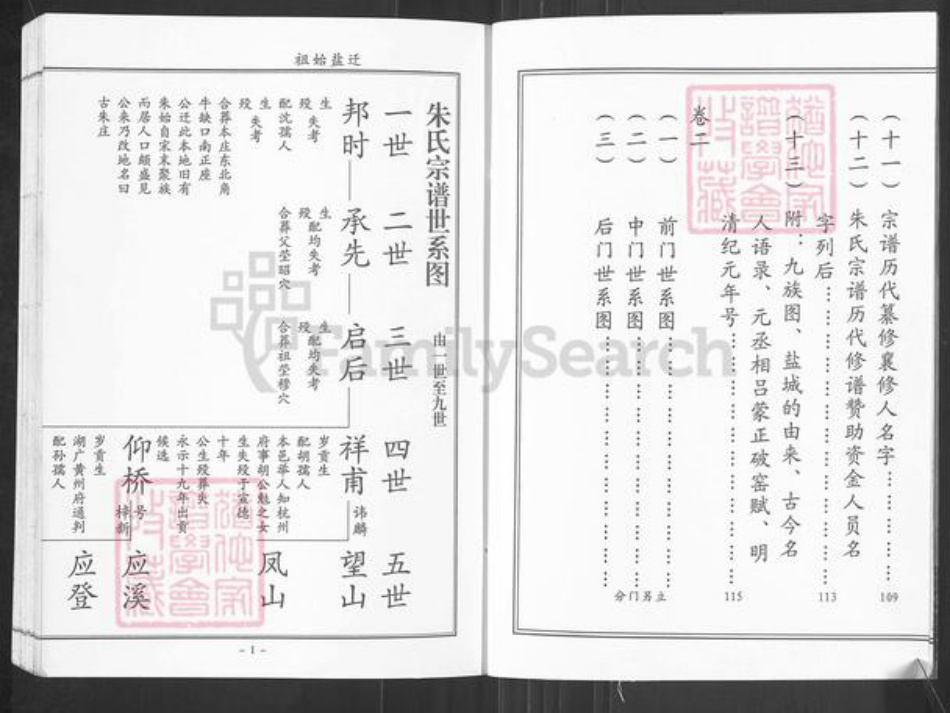 (十一) 宗谱历代纂修襄修人名字……………109
(十二) 朱氏宗谱历代修谱赞助资金人员名
字列后……………113
(十三) 附:九族图、盐城的由来、古今名
人语录、元丞相吕蒙正破窑赋、明
清纪元年号……………115
卷二
(一) 前门世系图……………
(二) 中门世系图……………
(三) 后门世系图……………
分门另立
祖始盐迁
朱氏宗谱世系图 由一世至九世
一世 二世 三世 四世 五世
邦时 承先 启后 祥甫 讳麟 望山
生
殁 失考
配沈孺人
生
殁 失考
合葬本庄东北角
牛缺口南正座
公迁此本地旧有
朱始自宋末聚族
而居人口颇盛见
公来乃改地名曰
古朱庄
生
殁 配均失考
合葬父茔昭穴
生
殁 配均失考
合葬祖茔穆穴
岁贡生
配胡孺人
本邑举人知杭州
府事胡公魁之女
生失殁于宣德
十年
公生殁葬失
永示十九年出贡
候选
凤山
仰桥 号梓新 应溪
岁贡生
湖广黄州府通判
配孙孺人
应登
- 1 -
FamilySearch